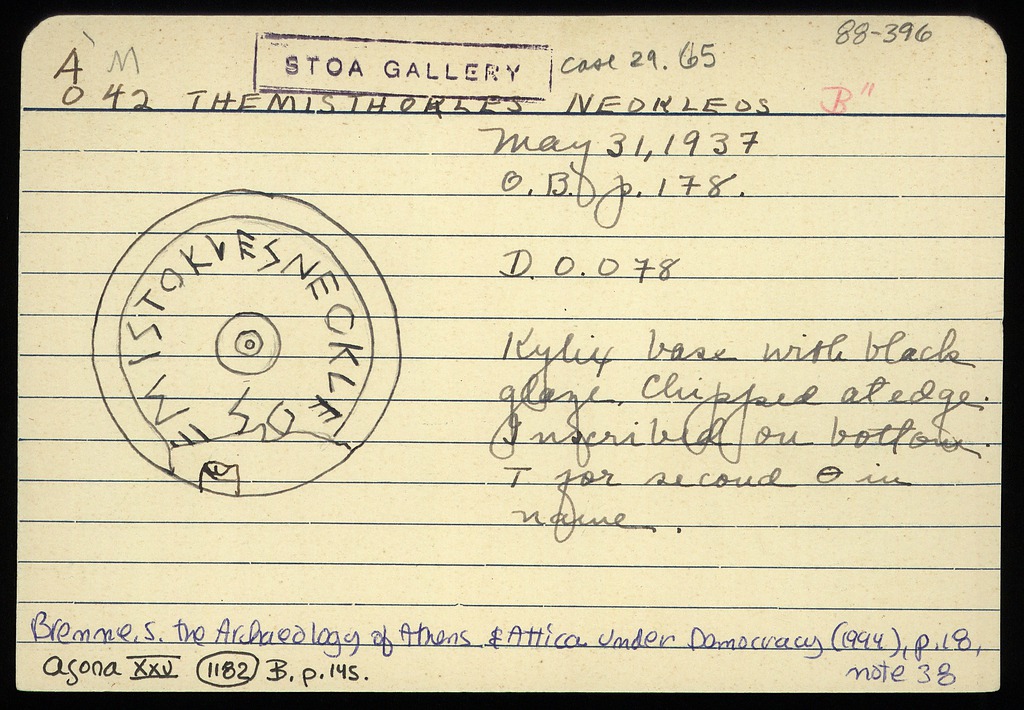 88-396
A' M STOA GALLERY case 29. 65
O 42 THEMISTHOKLES NEOKLEOS B"
May 31, 1937
O.B. p. 178.
D. O. 078
Kylix base with black
glaze. Chipped at edge.
Inscribed on bottom.
T for second Θ in
name.
EMISTOKLES NEOKLE
OS
Brenne, S. The Archaeology of Athens & Attica under Democracy (1994), p. 18,
note 38
Agora XXV 1182 B. p. 145.